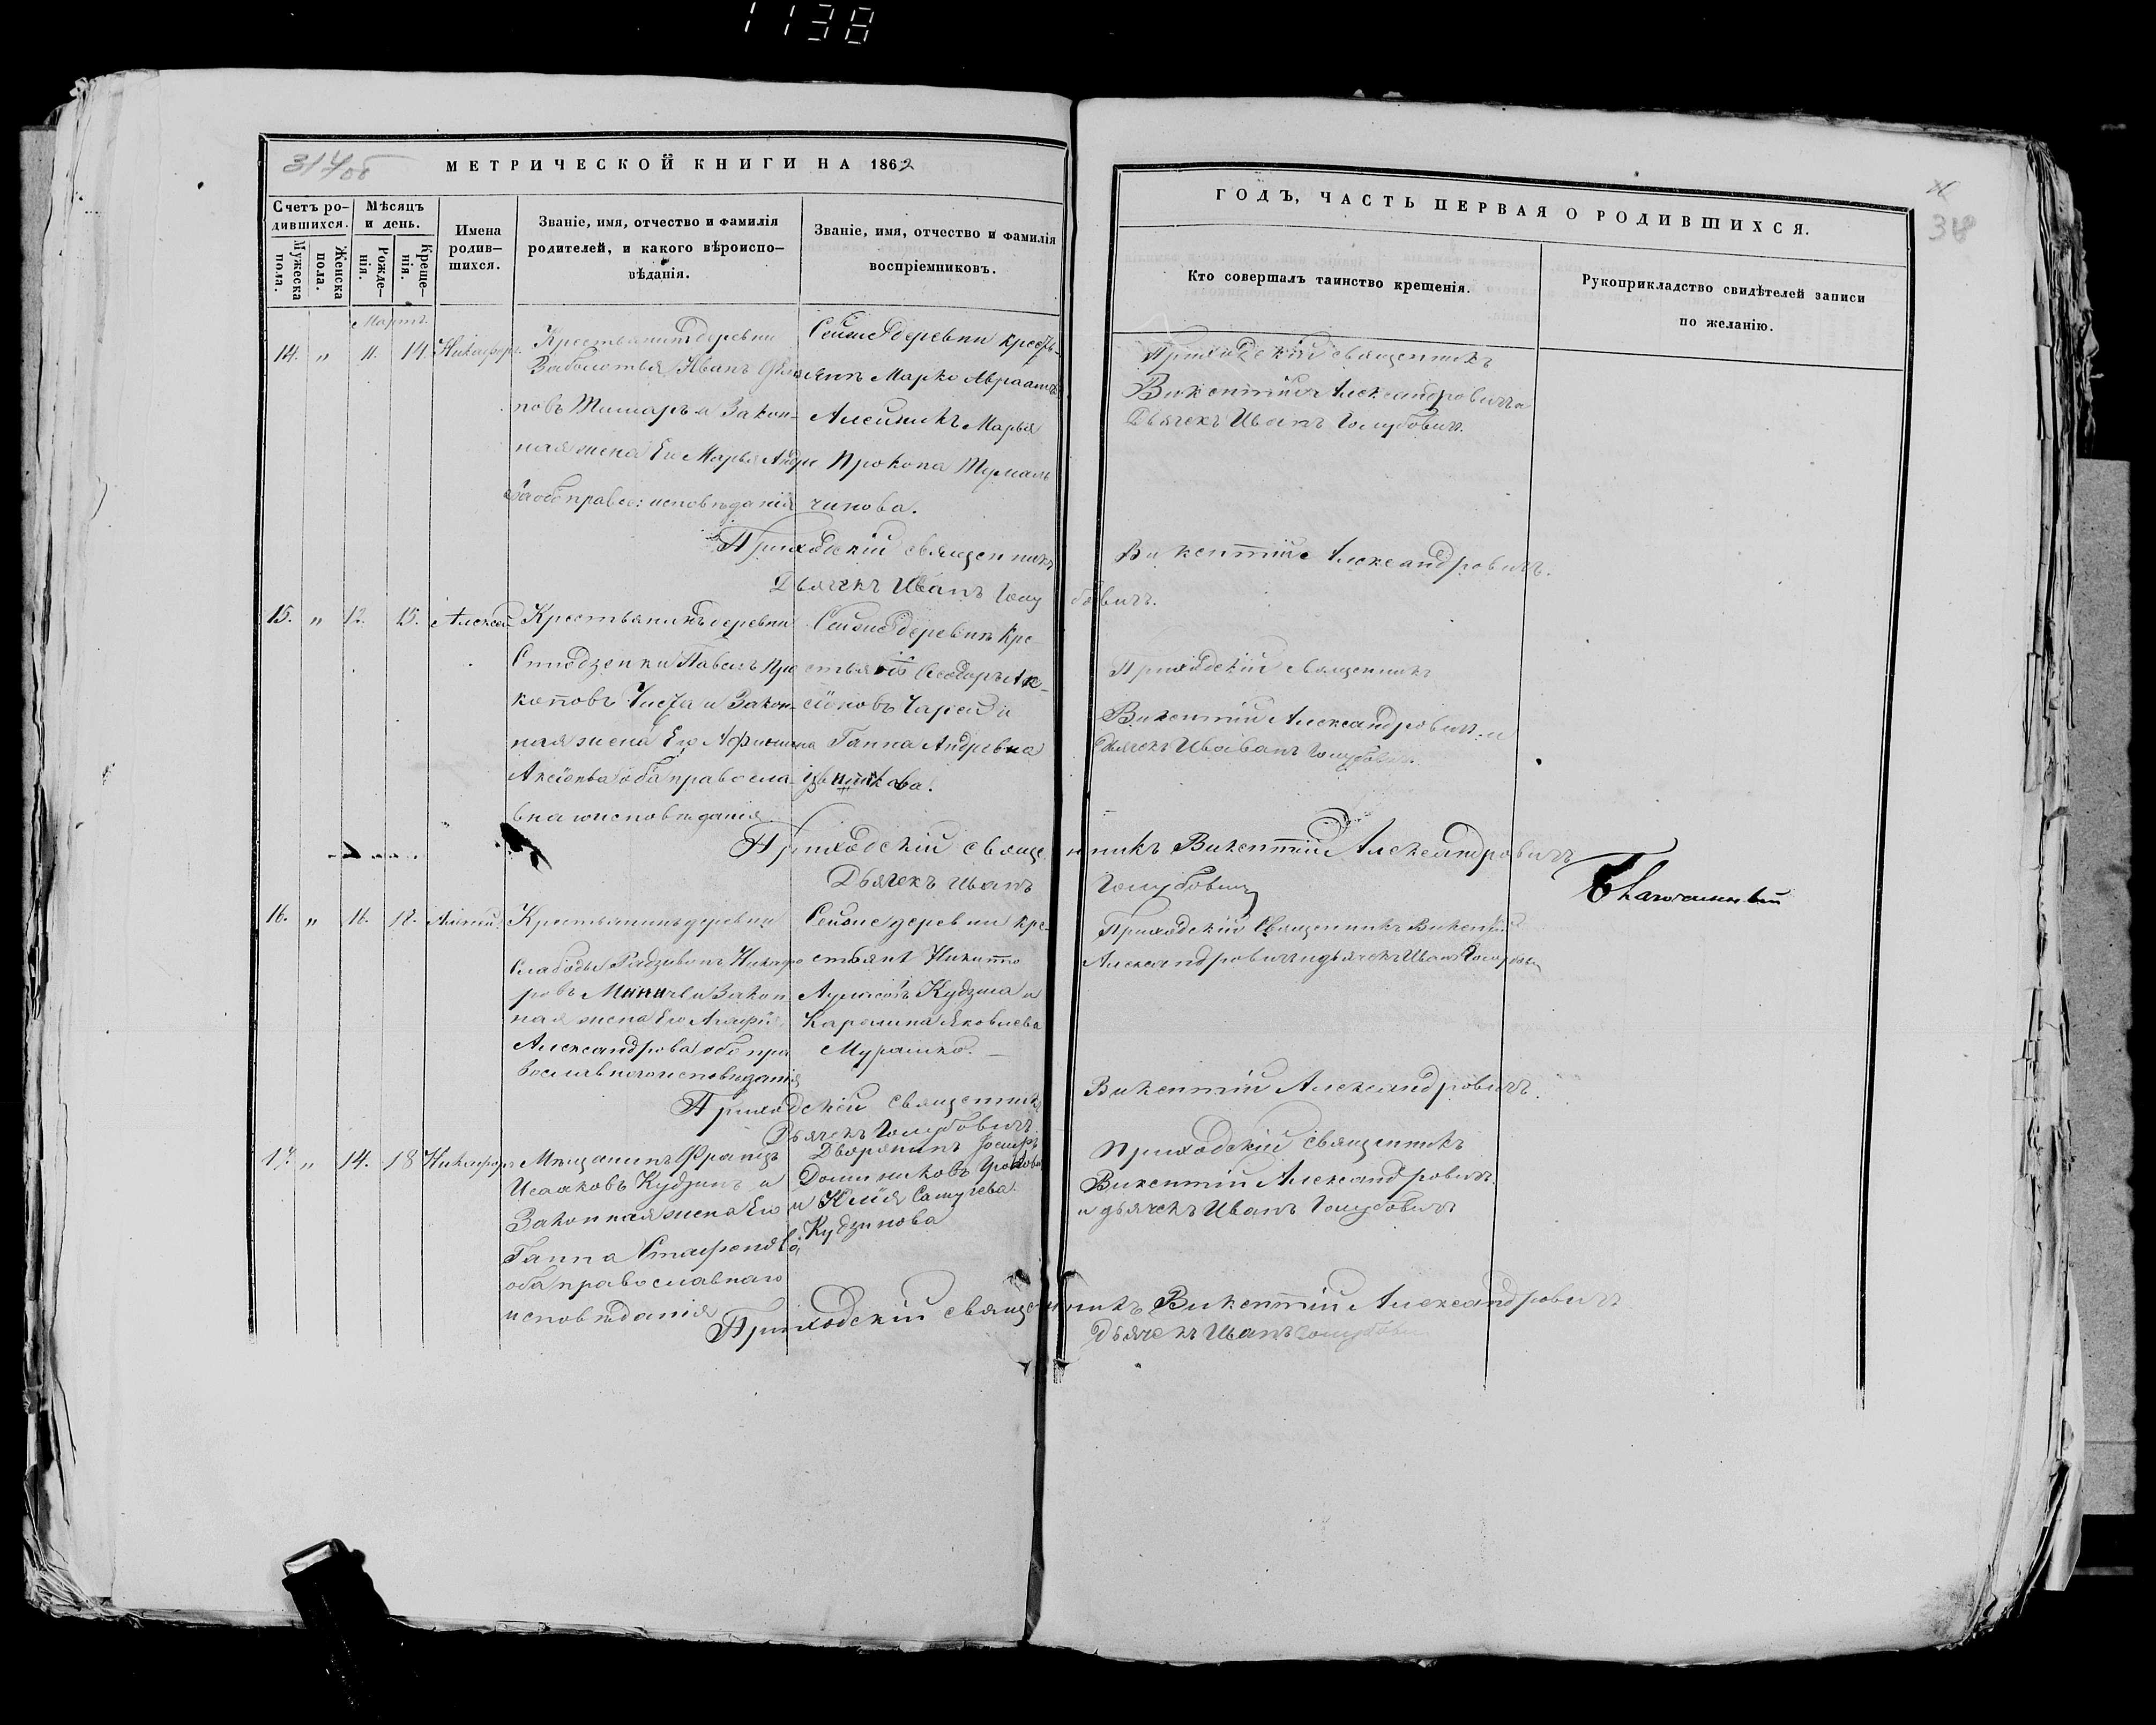 1138
317об
МЕТРИЧЕСКОЙ КНИГИ НА 1862
Счетъ ро-
дившихся.
Мужеска
пола.
Женска
пола.
Мѣсяцъ
и день.
Рожде-
нія.
Креще-
нія.
Имена
родив-
шихся.
Званіе, имя, отчество и фамилія
родителей, и какого вѣроиспо-
вѣданія.
Званіе, имя, отчество и фамилія
воспріемниковъ.
ГОДЪ, ЧАСТЬ ПЕРВАЯ О РОДИВШИХСЯ.
318
Кто совершалъ таинство крещенія.
Рукоприкладство свидѣтелей записи
по желанію.
Мартъ
14. " 11. 14. Никифоръ.
Крестьянинъ деревни
Заболотья Иванъ
новъ и Закон-
ная жена Его Марья Андре
оба правос: исповѣданія
Сейже деревни кресть-
янъ Марко Авраамъ
Алейникъ Марья
Прокопа Тумаль
чикова.
Приходскій священникъ
Викентій Александровичъ и
Дьячекъ Иванъ Голубовичъ.
Приходскій священникъ Викентій Александровичъ.
Дьячекъ Иванъ Голубовичъ.
15. " 12. 15. Алексѣй
Крестьянинъ деревни
Павелъ Про
коповъ и Закон-
ная жена Его
оба правосла-
внаго исповѣданія
Сейже деревни Кре-
стьянъ Ѳеодоръ Ак-
сіоновъ и
Ганна Андрѣвна
Приходскій священникъ
Викентій Александровичъ и
Дьячекъ Ивованъ Голубовичъ.
Приходскій священникъ Викентій Александровичъ
Дьячекъ Иванъ Голубовичъ
16. " 16. 18. Алексій.
Крестьянинъ деревни
Слабоды Радзивонъ Никифо
ровъ Миничъ и Закон
ная жена Его Агафія
Александрова обе пра
вославнаго исповѣданія
Сейже деревни кре-
стьянъ Никита
Кудзма и
Каролина Яковлева
Мурашко.
Приходскій Священникъ Викентій
Александровичъ и дьячекъ Иванъ Голубовичъ
Приходскій священникъ Викентій Александровичъ.
Дьячекъ Голубовичъ
17. " 14. 18 Никифоръ
Мѣщанинъ Францъ
Исааковъ Кудзинъ и
Законная жена Его
Ганна Стафанова
оба православнаго
исповѣданія
Дворянинъ Іосифъ
Доминиковъ
и Юлія Самусева
Кудзинова
Приходскій священникъ
Викентій Александровичъ
и дьячекъ Иванъ Голубовичъ
Приходскій священникъ Викентій Александровичъ
Дьячекъ Иванъ Голубови